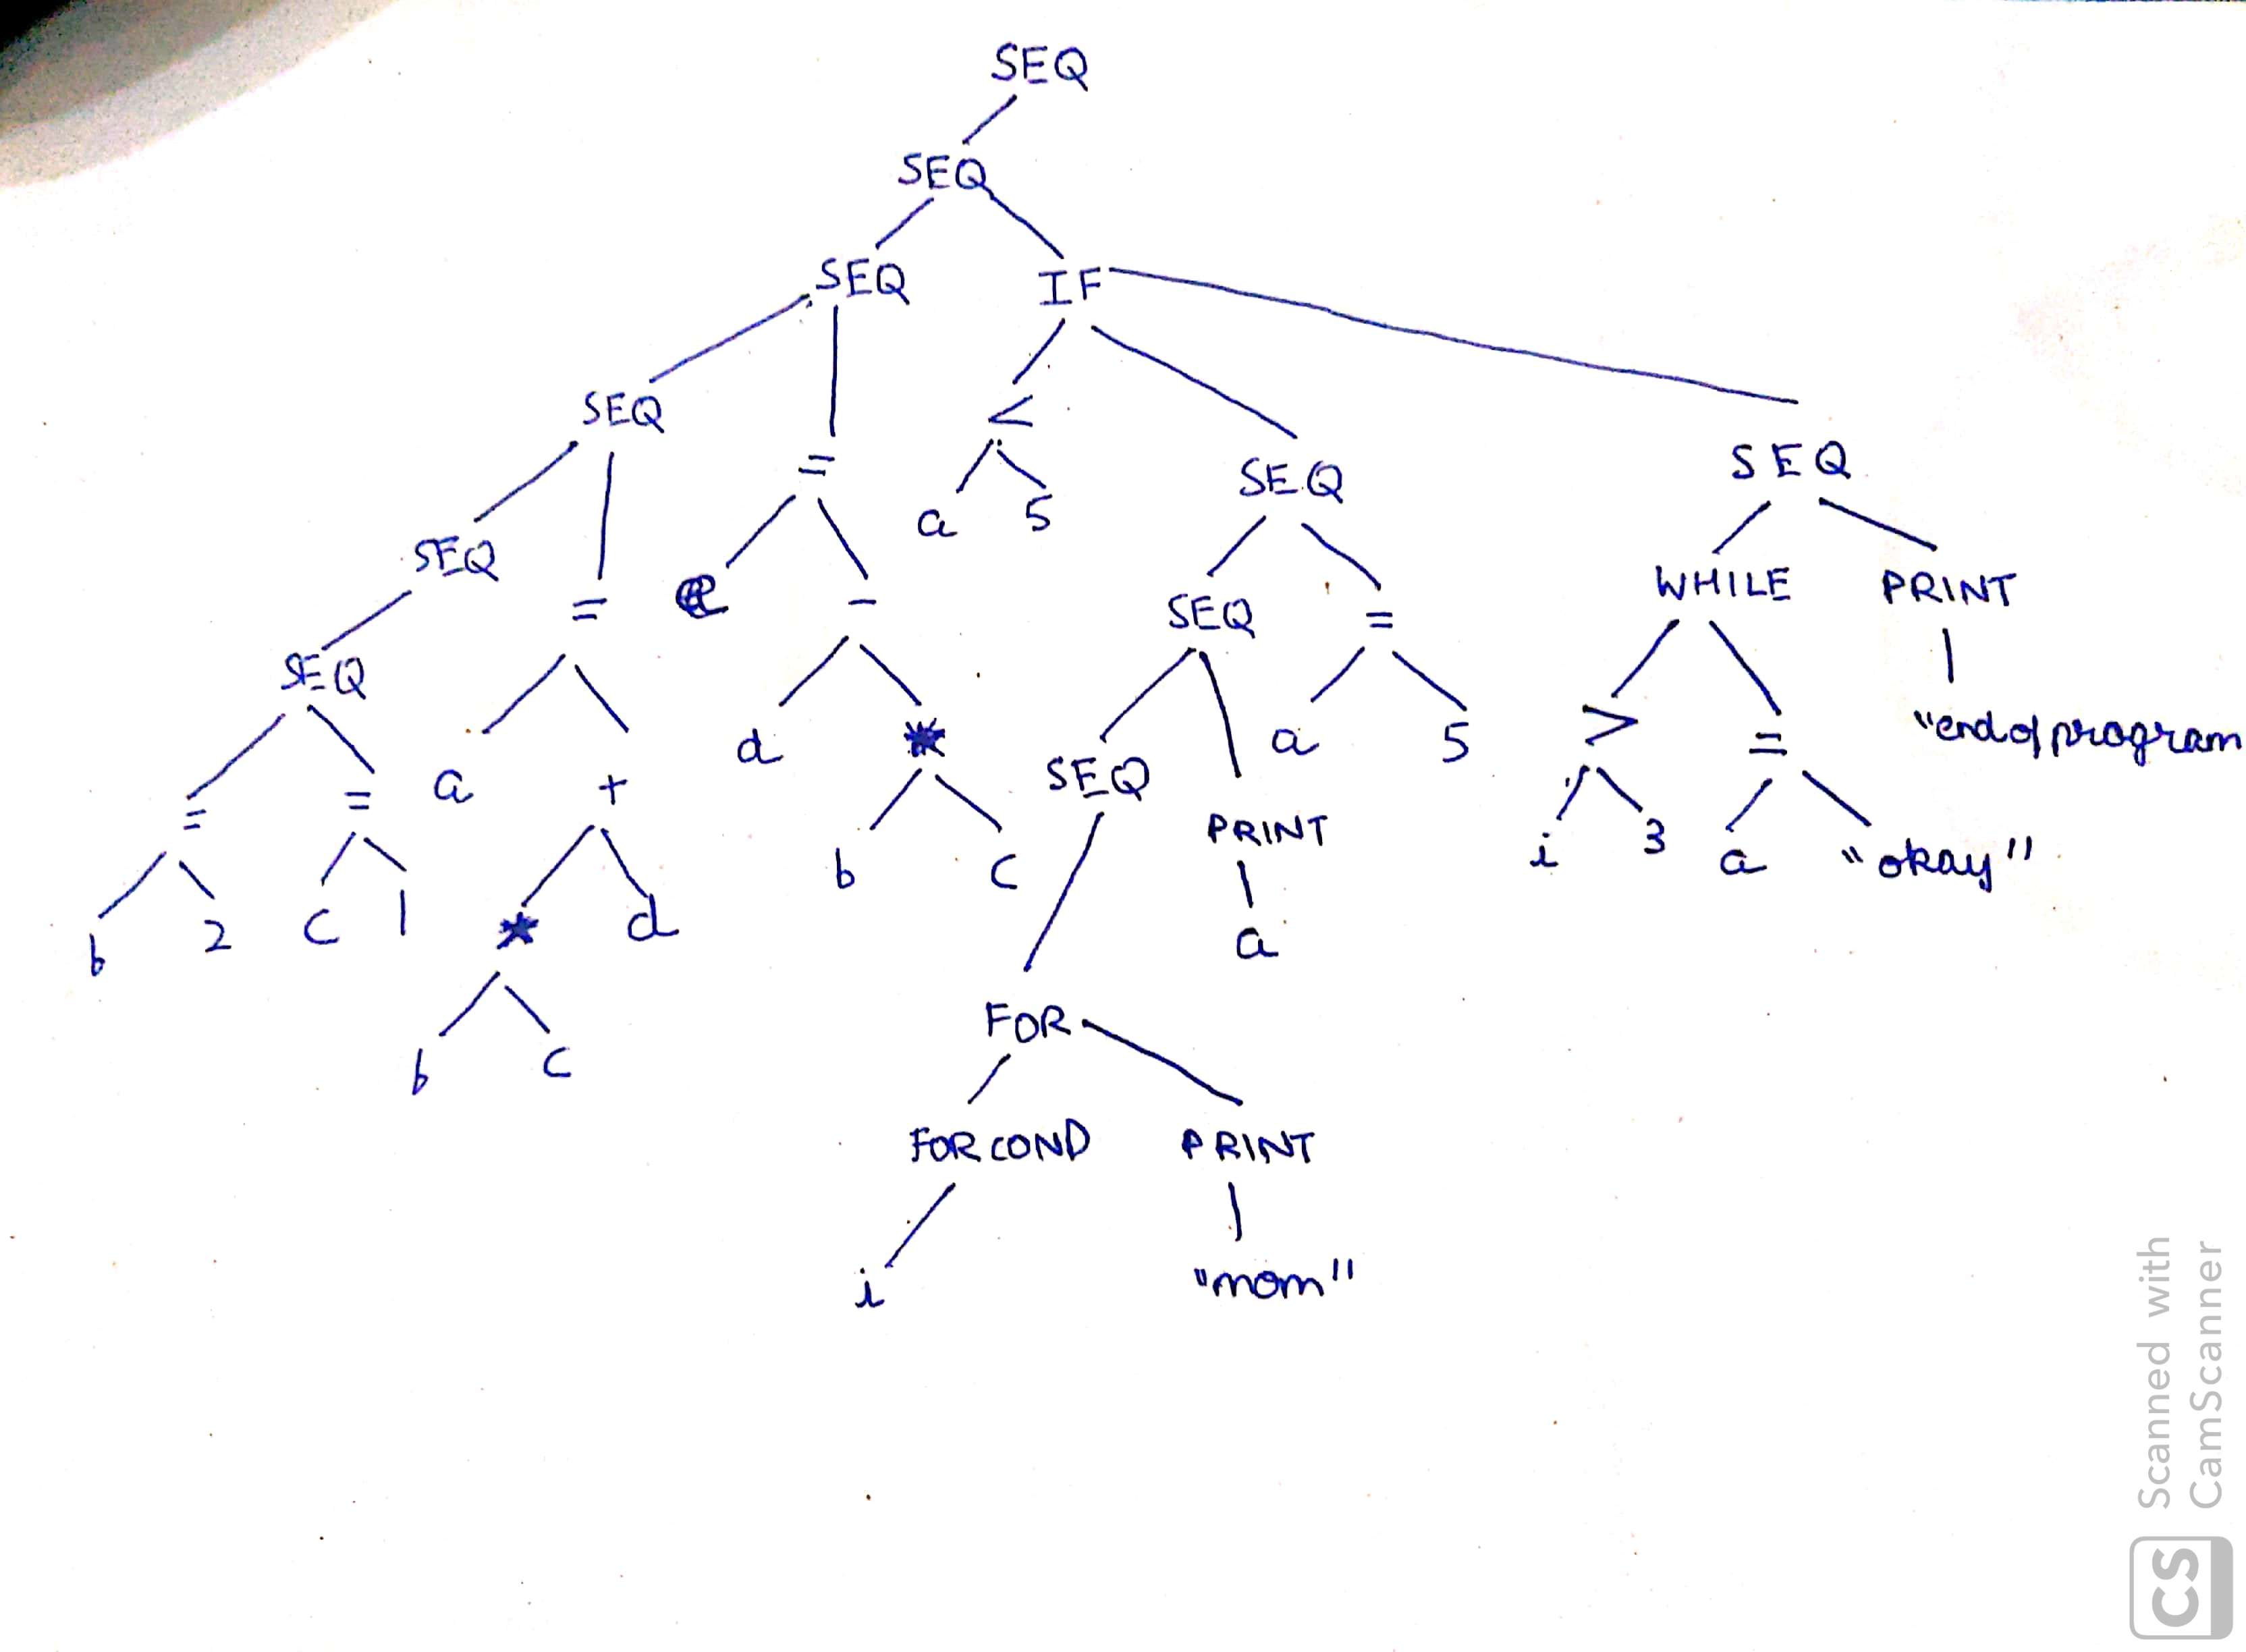 SEQ
SEQ
SEQ IF
SEQ = < SEQ SEQ
SEQ = e - a 5 SEQ = WHILE PRINT
SEQ a + d * SEQ PRINT a 5 > = "end of program
= = * d b c a i 3 a "okay"
b 2 c 1 b c FOR
FORCOND PRINT
i "mom"
Scanned with
CamScanner
CS